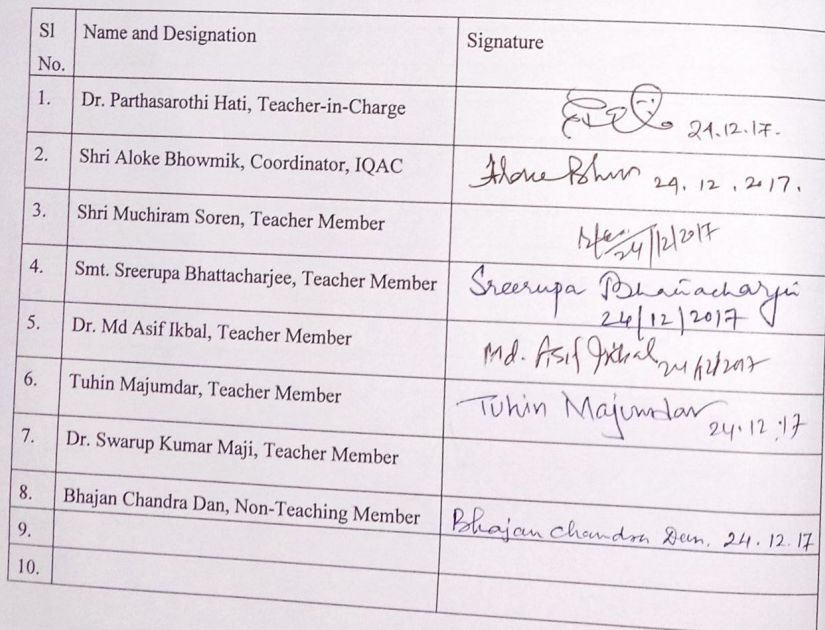 Sl No. Name and Designation Signature
1. Dr. Parthasarothi Hati, Teacher-in-Charge 24.12.17.
2. Shri Aloke Bhowmik, Coordinator, IQAC 24.12.2017.
3. Shri Muchiram Soren, Teacher Member 24/12/2017
4. Smt. Sreerupa Bhattacharjee, Teacher Member Sreerupa Bhattacharjee
24/12/2017
5. Dr. Md Asif Ikbal, Teacher Member Md. Asif Ikbal 24/12/2017
6. Tuhin Majumdar, Teacher Member Tuhin Majumdar 24.12.17
7. Dr. Swarup Kumar Maji, Teacher Member
8. Bhajan Chandra Dan, Non-Teaching Member Bhajan Chandra Dan. 24.12.17
9.
10.